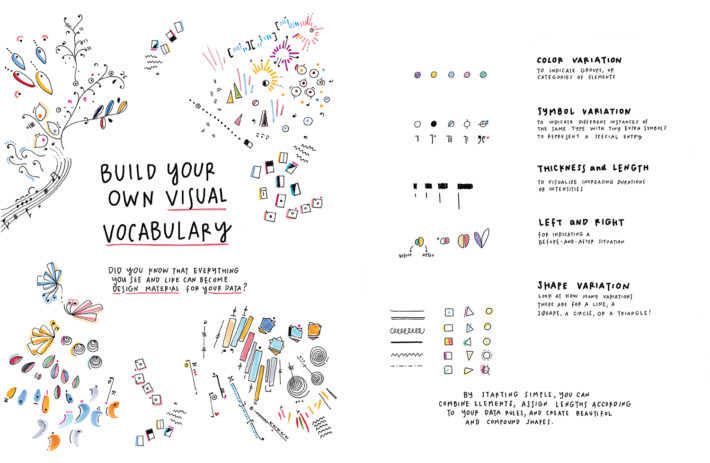 BUILD YOUR
OWN VISUAL
VOCABULARY
DID YOU KNOW THAT EVERYTHING
YOU SEE AND LIKE CAN BECOME
DESIGN MATERIAL FOR YOUR DATA?
COLOR VARIATION
TO INDICATE GROUPS, OR
CATEGORIES OF ELEMENTS
SYMBOL VARIATION
TO INDICATE DIFFERENT INSTANCES OF
THE SAME TYPE WITH TINY EXTRA SYMBOLS
TO REPRESENT A SPECIAL ENTRY
THICKNESS and LENGTH
TO VISUALIZE INCREASING DURATIONS
OR INTENSITIES
LEFT and RIGHT
FOR INDICATING A
BEFORE-AND-AFTER SITUATION
before after
SHAPE VARIATION
LOOK AT HOW MANY VARIATIONS
THERE ARE FOR A LINE, A
SQUARE, A CIRCLE, OR A TRIANGLE!
BY STARTING SIMPLE, YOU CAN
COMBINE ELEMENTS, ASSIGN LENGTHS ACCORDING
TO YOUR DATA RULES, AND CREATE BEAUTIFUL
AND COMPOUND SHAPES.